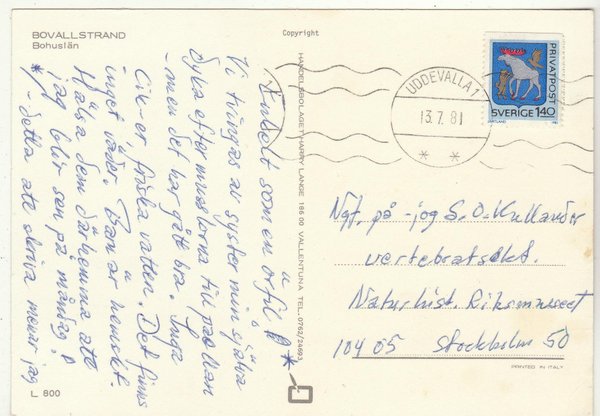 BOVALLSTRAND
Bohuslän
Copyright
Enkelt som en orfil *
Vi tvingas av syster min själva
dyka efter musslorna till paellan
men det har gått bra. Inga
Cik-er, friska vatten. Det finns
inget väder. Barr är hemskt.
Hälsa dem därhemma att
jag blir sen på måndag!
*/ detta att skriva menar jag
L 800
HANDELSBOLAGET HARRY LANGE 186 00 VALLENTUNA TEL. 0762/24593
UDDEVALLA 1
13.7.81
* *
PRIVATPOST
SVERIGE 140
JÄMTLAND
Ngt. på -jog S.O. Kullander
vertebratsekt.
Naturhist. Riksmuseet
104 05 Stockholm 50
PRINTED IN ITALY